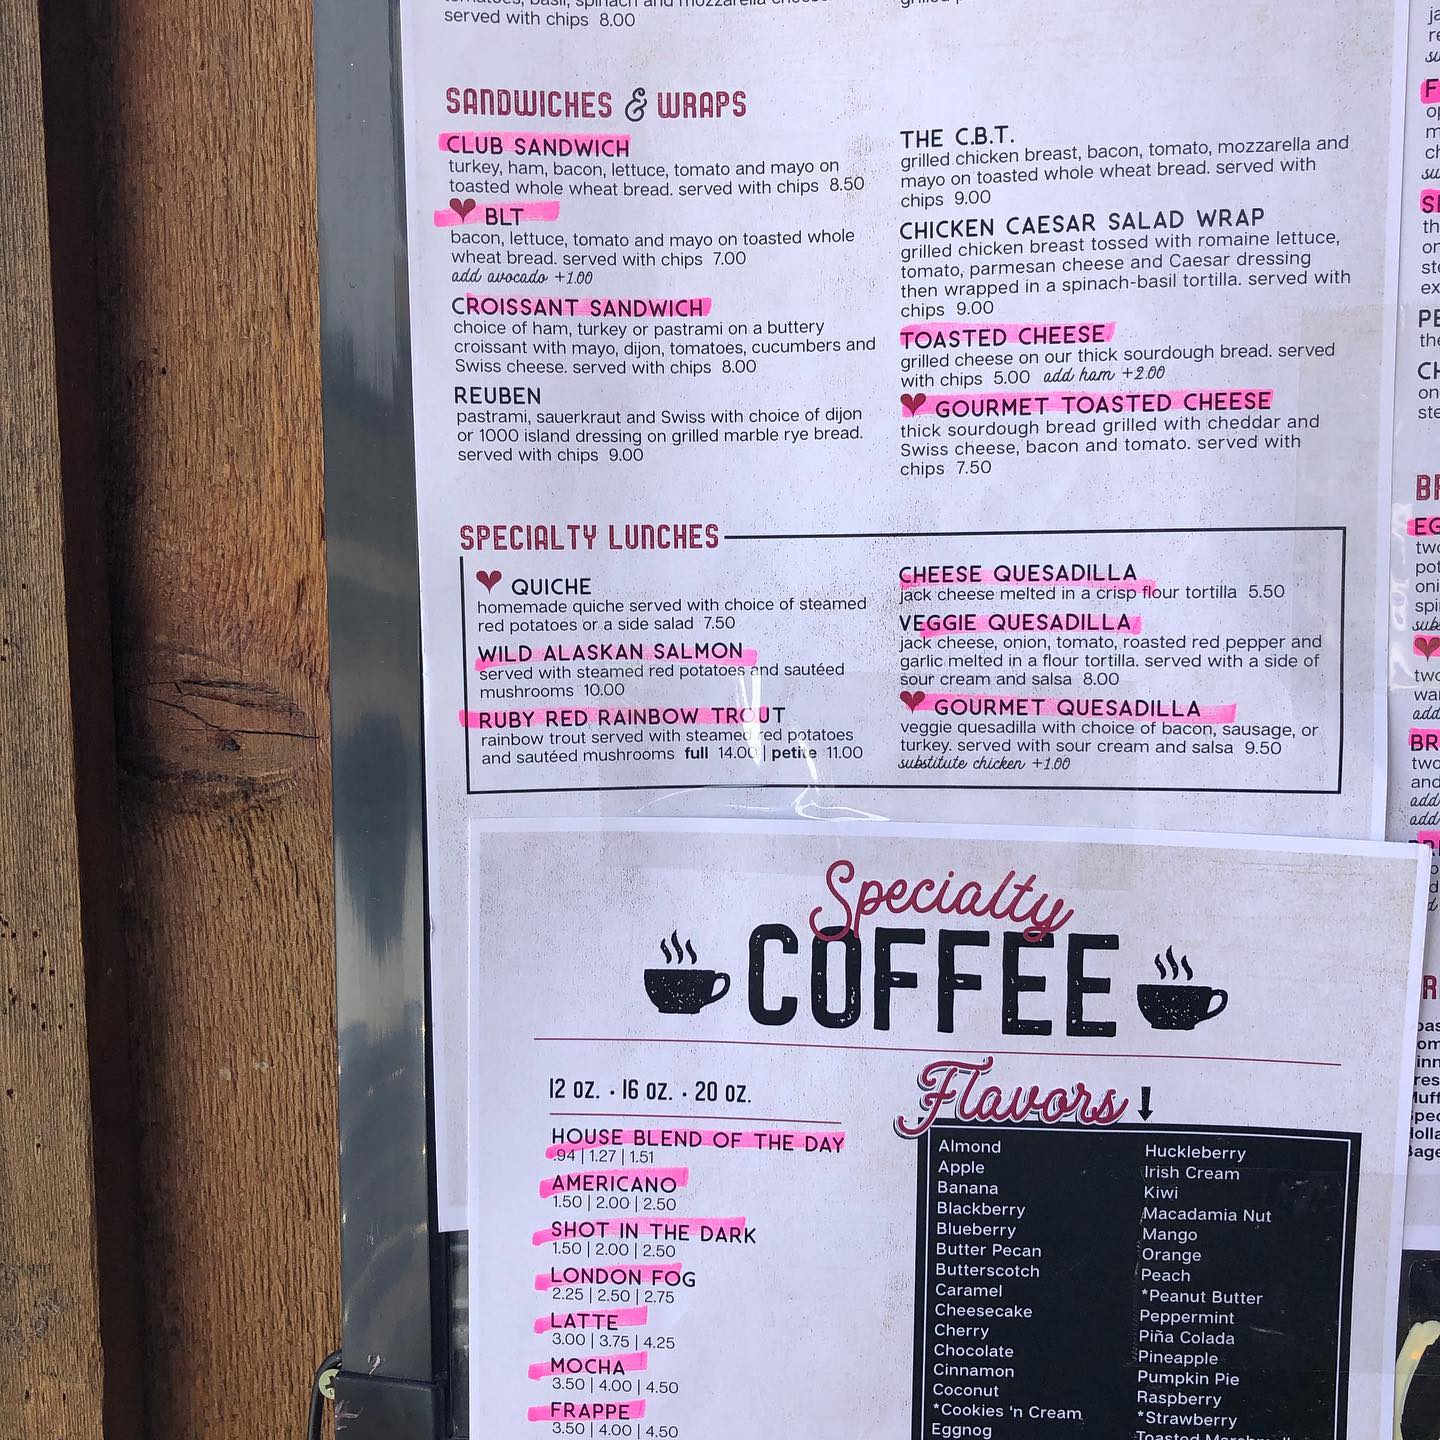 served with chips 8.00
SANDWICHES & WRAPS
CLUB SANDWICH
turkey, ham, bacon, lettuce, tomato and mayo on
toasted whole wheat bread. served with chips 8.50
BLT
bacon, lettuce, tomato and mayo on toasted whole
wheat bread. served with chips 7.00
add avocado +1.00
CROISSANT SANDWICH
choice of ham, turkey or pastrami on a buttery
croissant with mayo, dijon, tomatoes, cucumbers and
Swiss cheese. served with chips 8.00
REUBEN
pastrami, sauerkraut and Swiss with choice of dijon
or 1000 island dressing on grilled marble rye bread.
served with chips 9.00
THE C.B.T.
grilled chicken breast, bacon, tomato, mozzarella and
mayo on toasted whole wheat bread. served with
chips 9.00
CHICKEN CAESAR SALAD WRAP
grilled chicken breast tossed with romaine lettuce,
tomato, parmesan cheese and Caesar dressing
then wrapped in a spinach-basil tortilla. served with
chips 9.00
TOASTED CHEESE
grilled cheese on our thick sourdough bread. served
with chips 5.00 add ham +2.00
GOURMET TOASTED CHEESE
thick sourdough bread grilled with cheddar and
Swiss cheese, bacon and tomato. served with
chips 7.50
SPECIALTY LUNCHES
QUICHE
homemade quiche served with choice of steamed
red potatoes or a side salad 7.50
WILD ALASKAN SALMON
served with steamed red potatoes and sautéed
mushrooms 10.00
RUBY RED RAINBOW TROUT
rainbow trout served with steamed red potatoes
and sautéed mushrooms full 14.00 | petite 11.00
CHEESE QUESADILLA
jack cheese melted in a crisp flour tortilla 5.50
VEGGIE QUESADILLA
jack cheese, onion, tomato, roasted red pepper and
garlic melted in a flour tortilla. served with a side of
sour cream and salsa 8.00
GOURMET QUESADILLA
veggie quesadilla with choice of bacon, sausage, or
turkey. served with sour cream and salsa 9.50
substitute chicken +1.00
Specialty
COFFEE
12 OZ. • 16 OZ. • 20 OZ.
HOUSE BLEND OF THE DAY
.94 | 1.27 | 1.51
AMERICANO
1.50 | 2.00 | 2.50
SHOT IN THE DARK
1.50 | 2.00 | 2.50
LONDON FOG
2.25 | 2.50 | 2.75
LATTE
3.00 | 3.75 | 4.25
MOCHA
3.50 | 4.00 | 4.50
FRAPPE
3.50 | 4.00 | 4.50
Flavors
Almond
Apple
Banana
Blackberry
Blueberry
Butter Pecan
Butterscotch
Caramel
Cheesecake
Cherry
Chocolate
Cinnamon
Coconut
*Cookies 'n Cream
Eggnog
Huckleberry
Irish Cream
Kiwi
Macadamia Nut
Mango
Orange
Peach
*Peanut Butter
Peppermint
Piña Colada
Pineapple
Pumpkin Pie
Raspberry
*Strawberry